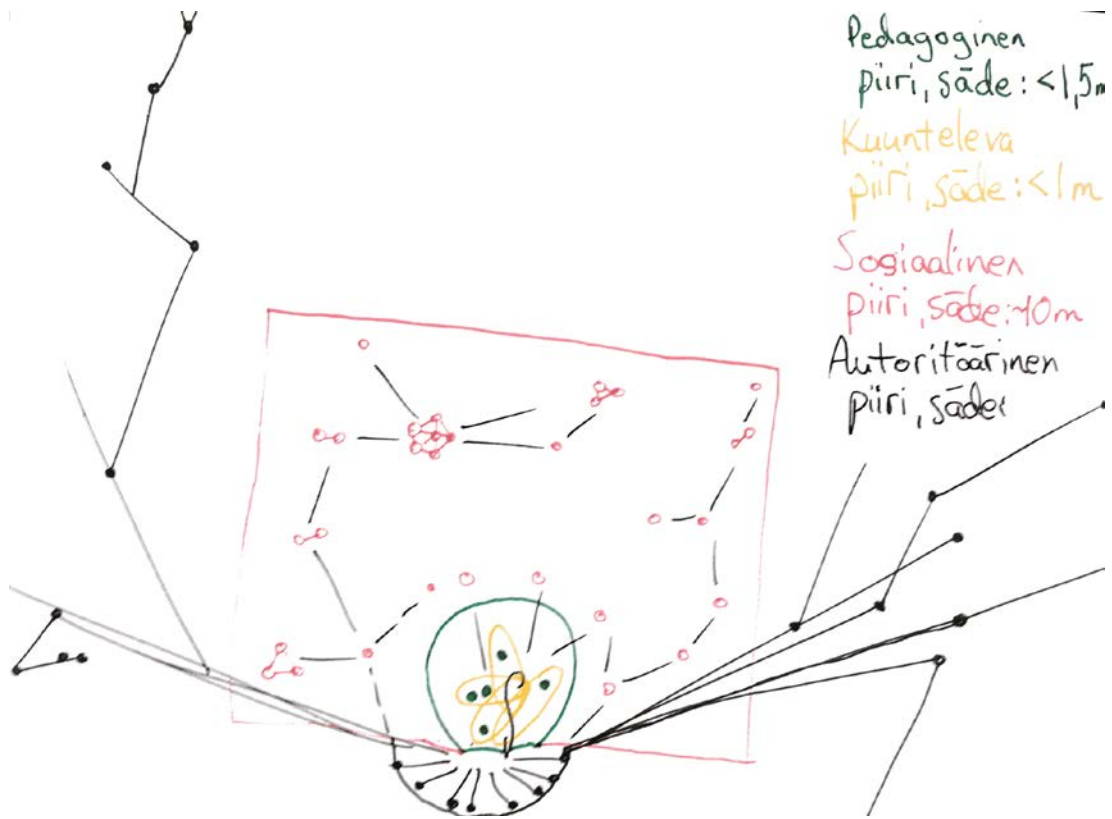 Pedagoginen
piiri, säde: <1,5m
Kuunteleva
piiri, säde: <1m
Sosiaalinen
piiri, säde: 10m
Autoritäärinen
piiri, säde: